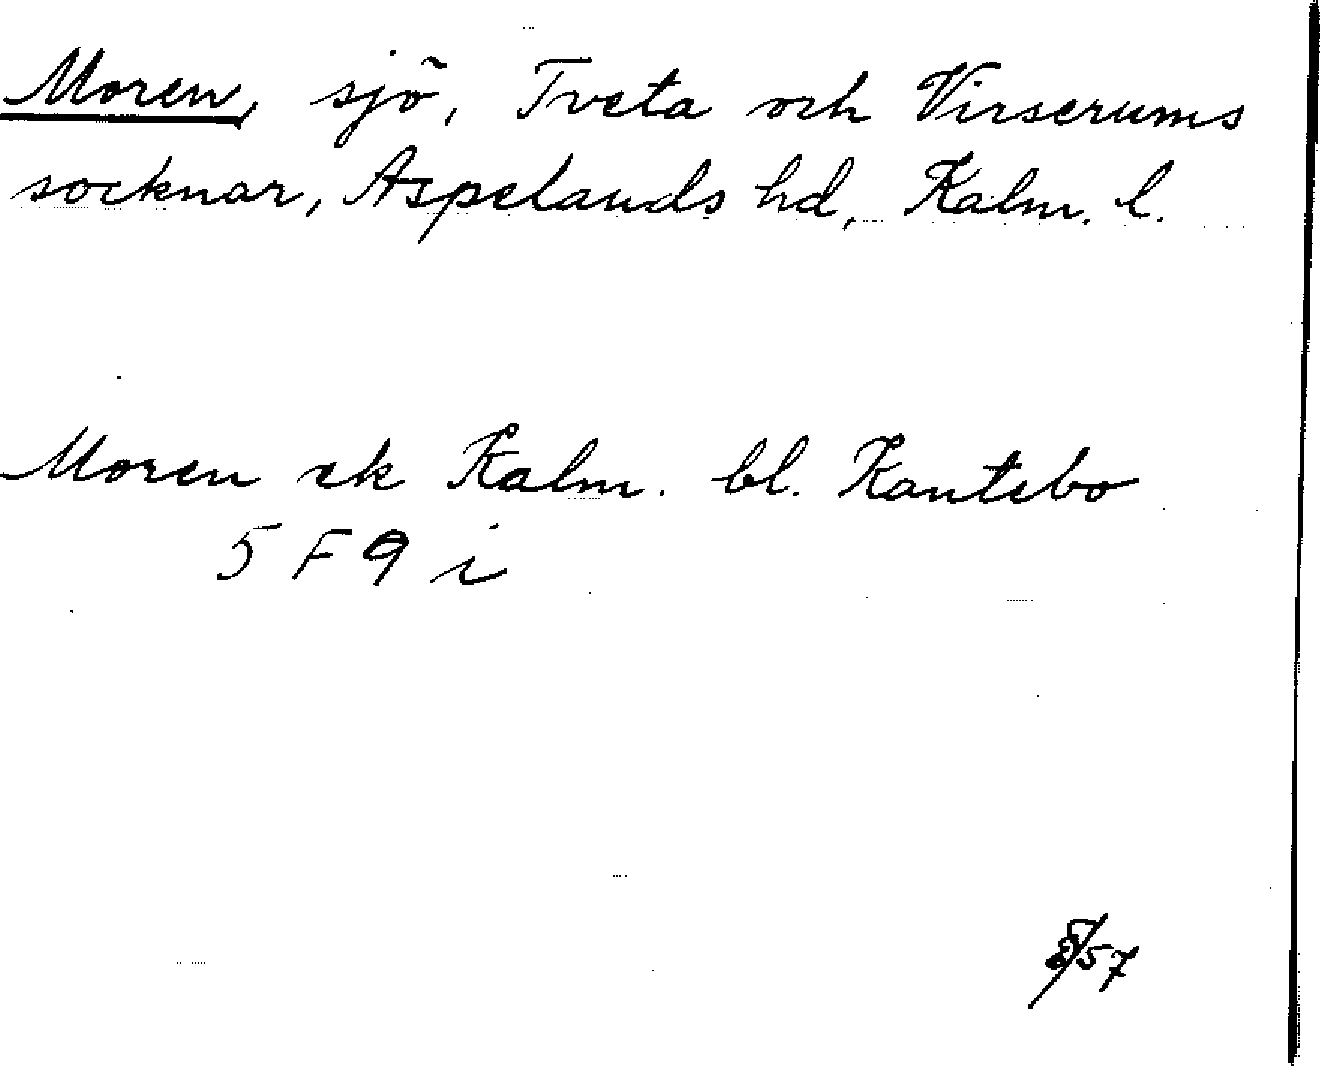 Moren, sjö, Tveta och Virserums
socknar, Aspelands hd, Kalm. l.
Moren ek Kalm. bl. Kantebo
5 F 9 i
8/57